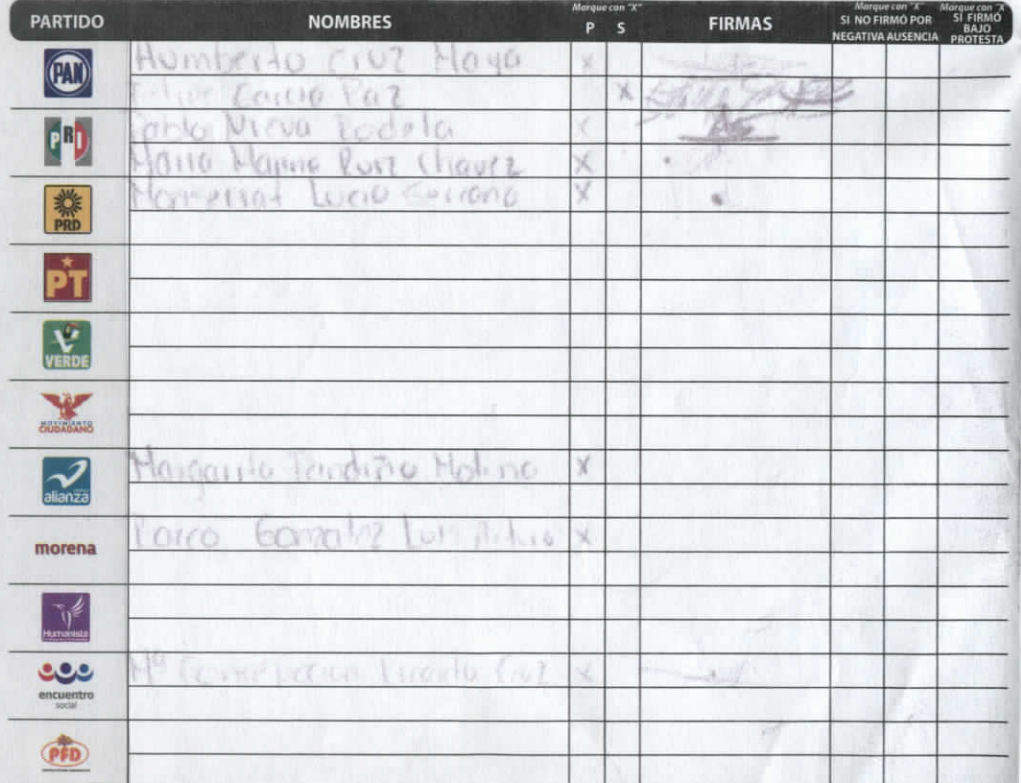 PARTIDO NOMBRES Marque con "X" P S FIRMAS Marque con "X" SI NO FIRMÓ POR NEGATIVA AUSENCIA Marque con "X" SI FIRMÓ BAJO PROTESTA
PAN Humberto Cruz Maya X
Felipe Garcia Paz X
PRI Pablo Nieva Rodela X
Maria Marina Ruiz Chavez X
PRD Monserrat Lucio X
PT
VERDE
MOVIMIENTO CIUDADANO
alianza Margarita Molino X
morena Gonzalez Luis Arturo X
Humanista
encuentro social Mª Cruz X
PFD